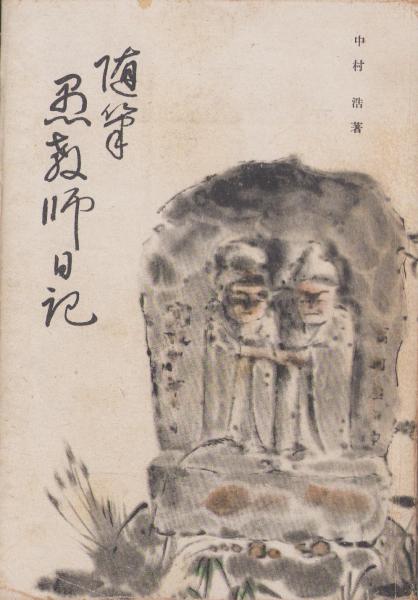 中村 浩著
随筆
愚教師日記